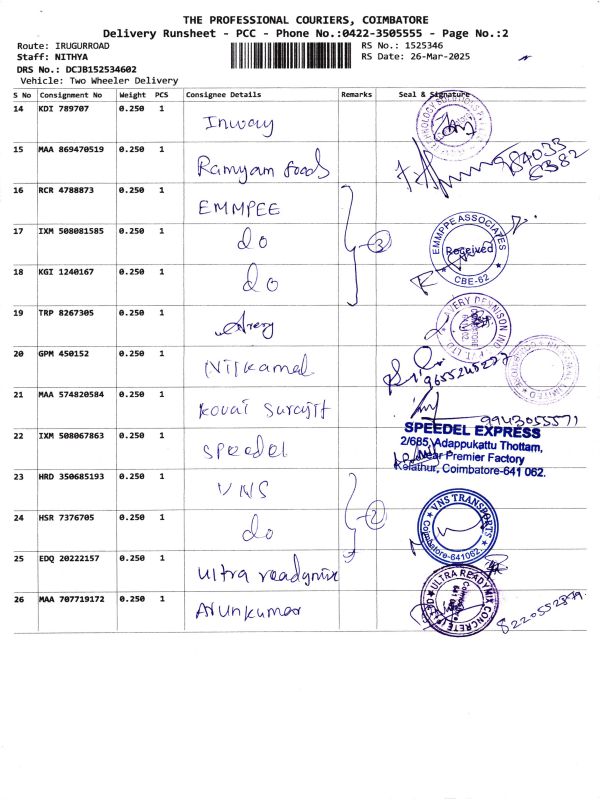 THE PROFESSIONAL COURIERS, COIMBATORE
Delivery Runsheet - PCC - Phone No.:0422-3505555 - Page No.:2
Route: IRUGURROAD
RS No.: 1525346
Staff: NITHYA
RS Date: 26-Mar-2025
DRS No.: DCJB152534602
Vehicle: Two Wheeler Delivery
S No Consignment No Weight PCS Consignee Details Remarks Seal & Signature
14 KDI 789707 0.250 1
Inway
15 MAA 869470519 0.250 1
Ramyam foods
16 RCR 4788873 0.250 1
EMMPEE
17 IXM 508081585 0.250 1
do
3
EMMPPE ASSOCIATES
Received
CBE-62
18 KGI 1240167 0.250 1
do
19 TRP 8267305 0.250 1
Avery
AVERY DENNISON IND PVT LTD
20 GPM 450152 0.250 1
Nilkamal
9655245227
21 MAA 574820584 0.250 1
Kovai Surajit
9943055571
22 IXM 508067863 0.250 1
Speedel
SPEEDEL EXPRESS
2/685, Adappukattu Thottam,
Near Premier Factory
Kalathur, Coimbatore-641 062.
23 HRD 350685193 0.250 1
VNS
24 HSR 7376705 0.250 1
do
2
VNS TRANSPORTS
Coimbatore-641062
25 EDQ 20222157 0.250 1
Ultra readymix
ULTRA READYMIX CONCRETE
26 MAA 707719172 0.250 1
Arunkumar